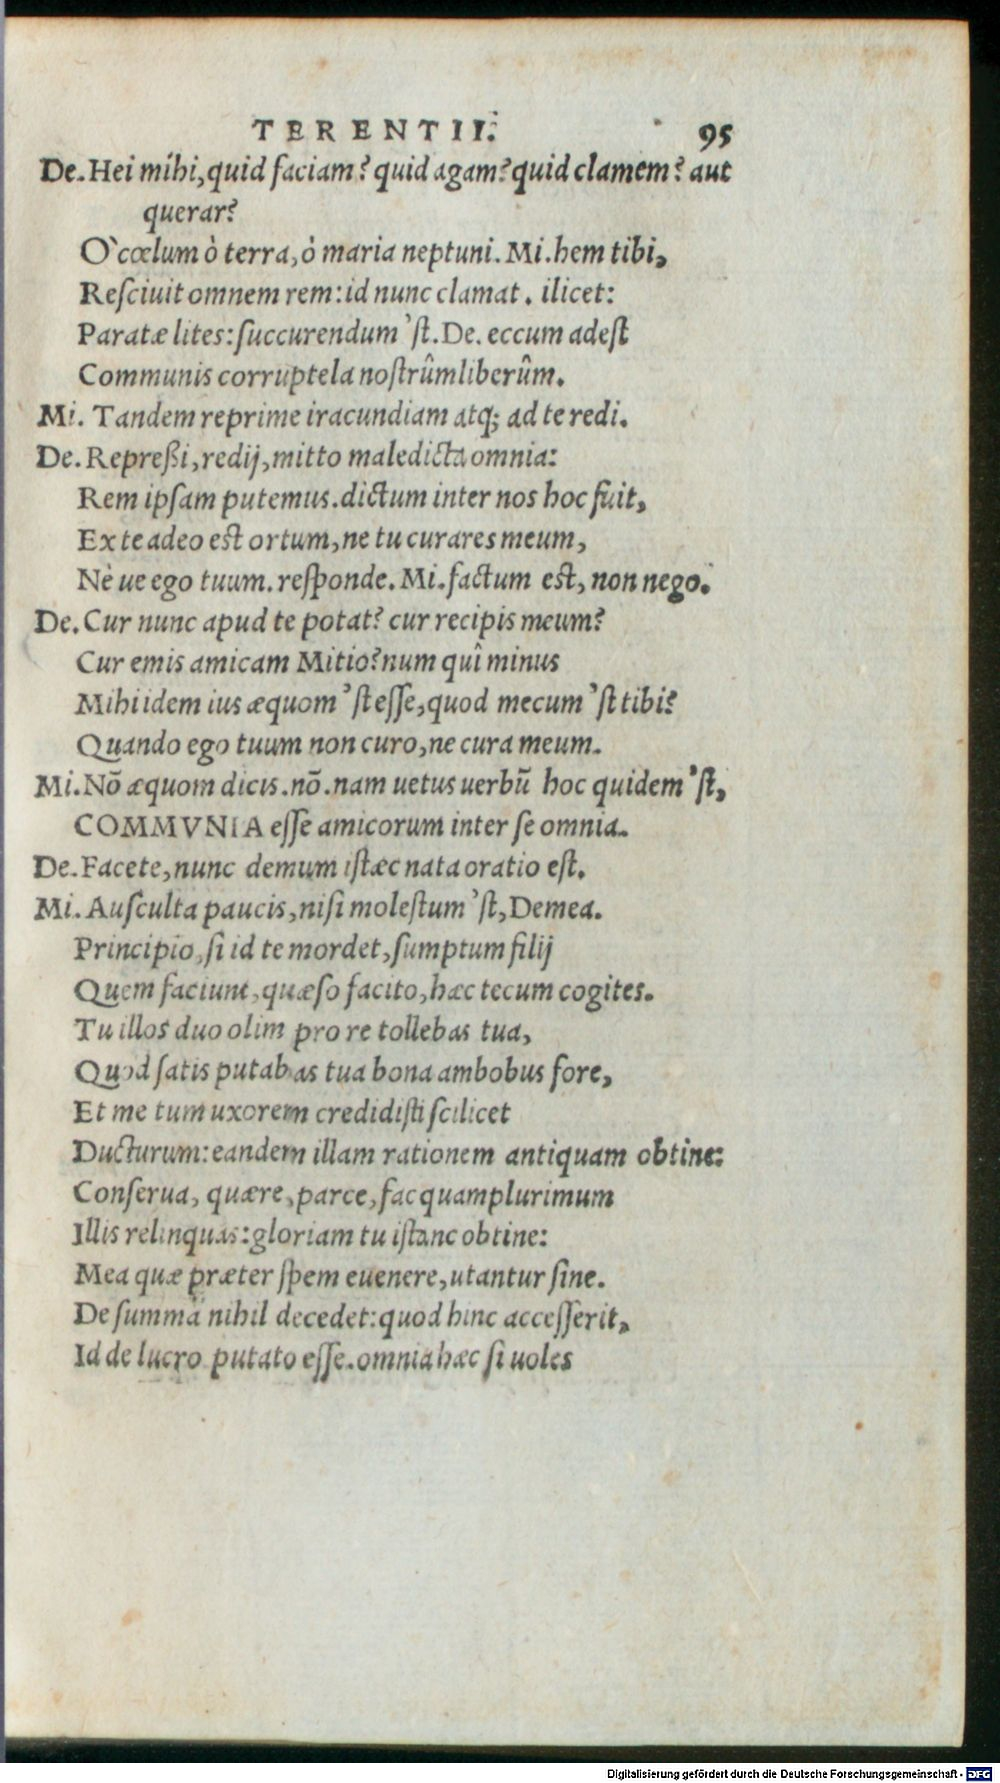 TERENTII. 95
De. Hei mihi, quid faciam? quid agam? quid clamem? aut
querar?
O` cœlum ò terra, ò maria neptuni. Mi. hem tibi,
Resciuit omnem rem: id nunc clamat. ilicet:
Paratæ lites: succurendum 'st. De. eccum adest
Communis corruptela nostrûm liberûm.
Mi. Tandem reprime iracundiam atq; ad te redi.
De. Repreßi, redij, mitto maledicta omnia:
Rem ipsam putemus. dictum inter nos hoc fuit,
Ex te adeo est ortum, ne tu curares meum,
Nè ue ego tuum. responde. Mi. factum est, non nego.
De. Cur nunc apud te potat? cur recipis meum?
Cur emis amicam Mitio? num quî minus
Mihi idem ius æquom 'st esse, quod mecum 'st tibi?
Quando ego tuum non curo, ne cura meum.
Mi. Nõ æquom dicis. nõ. nam uetus uerbũ hoc quidem 'st,
COMMVNIA esse amicorum inter se omnia.
De. Facete, nunc demum istæc nata oratio est.
Mi. Ausculta paucis, nisi molestum 'st, Demea.
Principio, si id te mordet, sumptum filij
Quem faciunt, quæso facito, hæc tecum cogites.
Tu illos duo olim pro re tollebas tua,
Quod satis putabas tua bona ambobus fore,
Et me tum uxorem credidisti scilicet
Ducturum: eandem illam rationem antiquam obtine:
Conserua, quære, parce, fac quamplurimum
Illis relinquas: gloriam tu istanc obtine:
Mea quæ præter spem euenere, utantur sine.
De summa nihil decedet: quod hinc accesserit,
Id de lucro putato esse. omnia hæc si uoles
Digitalisierung gefördert durch die Deutsche Forschungsgemeinschaft - DFG